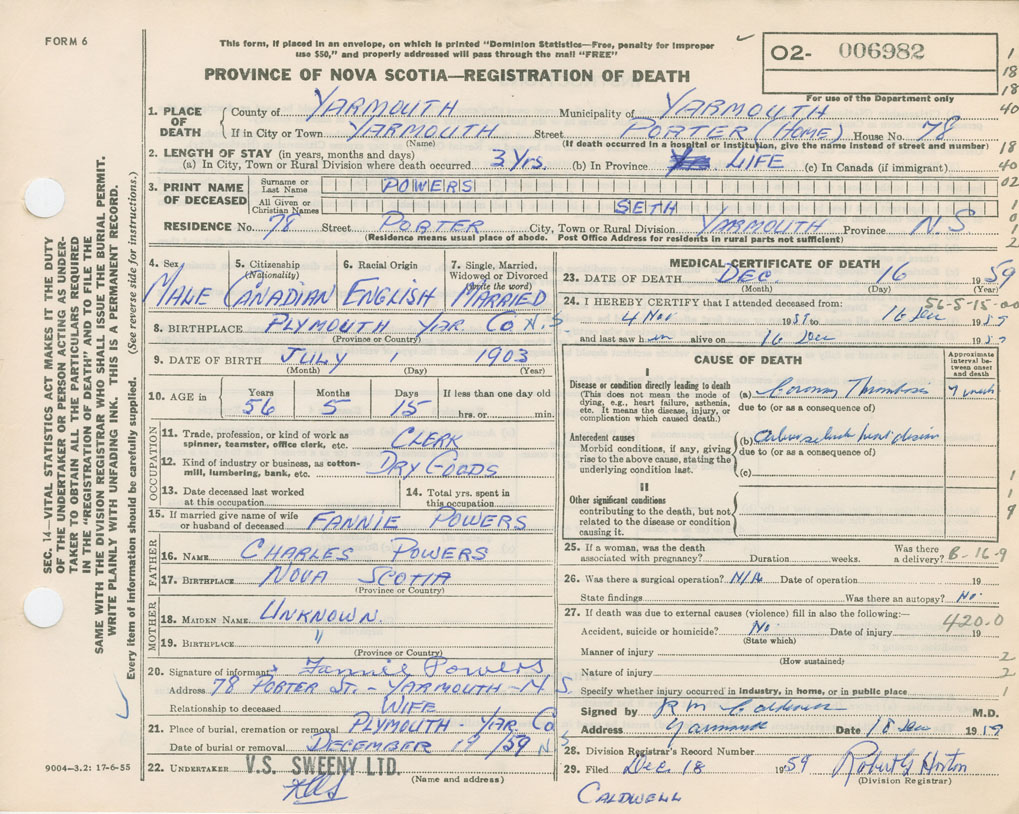 FORM 6
This form, if placed in an envelope, on which is printed "Dominion Statistics—Free, penalty for improper
use $50," and properly addressed will pass through the mail "FREE"
PROVINCE OF NOVA SCOTIA—REGISTRATION OF DEATH
O2- 006982
For use of the Department only
1
18
18
40
18
40
02
1
0
1
2
SEC. 14—VITAL STATISTICS ACT MAKES IT THE DUTY
OF THE UNDERTAKER OR PERSON ACTING AS UNDER-
TAKER TO OBTAIN ALL THE PARTICULARS REQUIRED
IN THE "REGISTRATION OF DEATH" AND TO FILE THE
SAME WITH THE DIVISION REGISTRAR WHO SHALL ISSUE THE BURIAL PERMIT.
WRITE PLAINLY WITH UNFADING INK. THIS IS A PERMANENT RECORD.
Every item of information should be carefully supplied. (See reverse side for instructions.)
1. PLACE OF DEATH
County of YARMOUTH Municipality of YARMOUTH
If in City or Town YARMOUTH Street PORTER (HOME) House No. 78
(Name) (If death occurred in a hospital or institution, give the name instead of street and number)
2. LENGTH OF STAY (in years, months and days)
(a) In City, Town or Rural Division where death occurred 3 Yrs. (b) In Province LIFE (c) In Canada (if immigrant)
3. PRINT NAME OF DECEASED
Surname or Last Name POWERS
All Given or Christian Names SETH
RESIDENCE No. 78 Street PORTER City, Town or Rural Division YARMOUTH Province N.S
(Residence means usual place of abode. Post Office Address for residents in rural parts not sufficient)
4. Sex MALE
5. Citizenship (Nationality) CANADIAN
6. Racial Origin ENGLISH
7. Single, Married, Widowed or Divorced (write the word) MARRIED
8. BIRTHPLACE PLYMOUTH YAR CO N.S.
(Province or Country)
9. DATE OF BIRTH JULY 1 1903
(Month) (Day) (Year)
10. AGE in Years 56 Months 5 Days 15 If less than one day old hrs. or min.
OCCUPATION
11. Trade, profession, or kind of work as spinner, teamster, office clerk, etc. CLERK
12. Kind of industry or business, as cotton-mill, lumbering, bank, etc. DRY GOODS
13. Date deceased last worked at this occupation
14. Total yrs. spent in this occupation
15. If married give name of wife or husband of deceased FANNIE POWERS
FATHER
16. NAME CHARLES POWERS
17. BIRTHPLACE NOVA SCOTIA
(Province or Country)
MOTHER
18. MAIDEN NAME UNKNOWN.
19. BIRTHPLACE "
(Province or Country)
20. Signature of informant Fannie Powers
Address 78 PORTER ST. - YARMOUTH - N.S.
Relationship to deceased WIFE
21. Place of burial, cremation or removal PLYMOUTH - YAR CO N
Date of burial or removal DECEMBER 19/59
22. UNDERTAKER V.S. SWEENY LTD.
(Name and address)
9004-3.2: 17-6-55
MEDICAL CERTIFICATE OF DEATH
23. DATE OF DEATH DEC. 16 1959
(Month) (Day) (Year)
56-5-15-00
24. I HEREBY CERTIFY that I attended deceased from:
4 Nov 1959 to 16 Dec 1959
and last saw him alive on 16 Dec 1959
CAUSE OF DEATH
Approximate interval between onset and death
I
Disease or condition directly leading to death (a) Coronary Thrombosis 7 weeks
(This does not mean the mode of dying, e.g., heart failure, asthenia, etc. It means the disease, injury, or complication which caused death.)
due to (or as a consequence of)
Antecedent causes (b) heart disease
Morbid conditions, if any, giving rise to the above cause, stating the underlying condition last.
due to (or as a consequence of)
(c)
II
Other significant conditions
contributing to the death, but not related to the disease or condition causing it.
1
1
9
25. If a woman, was the death associated with pregnancy? Duration weeks. Was there a delivery?
B-16-9
26. Was there a surgical operation? N/A Date of operation 19
State findings Was there an autopsy? No.
27. If death was due to external causes (violence) fill in also the following:—
420.0
Accident, suicide or homicide? No. Date of injury 19
(State which)
Manner of injury 2
(How sustained)
Nature of injury 2
Specify whether injury occurred in industry, in home, or in public place 1
Signed by R M Caldwell M.D.
Address Yarmouth Date 18 Dec 1959
28. Division Registrar's Record Number
29. Filed Dec. 18 1959 Robert G Horton
(Division Registrar)
CALDWELL